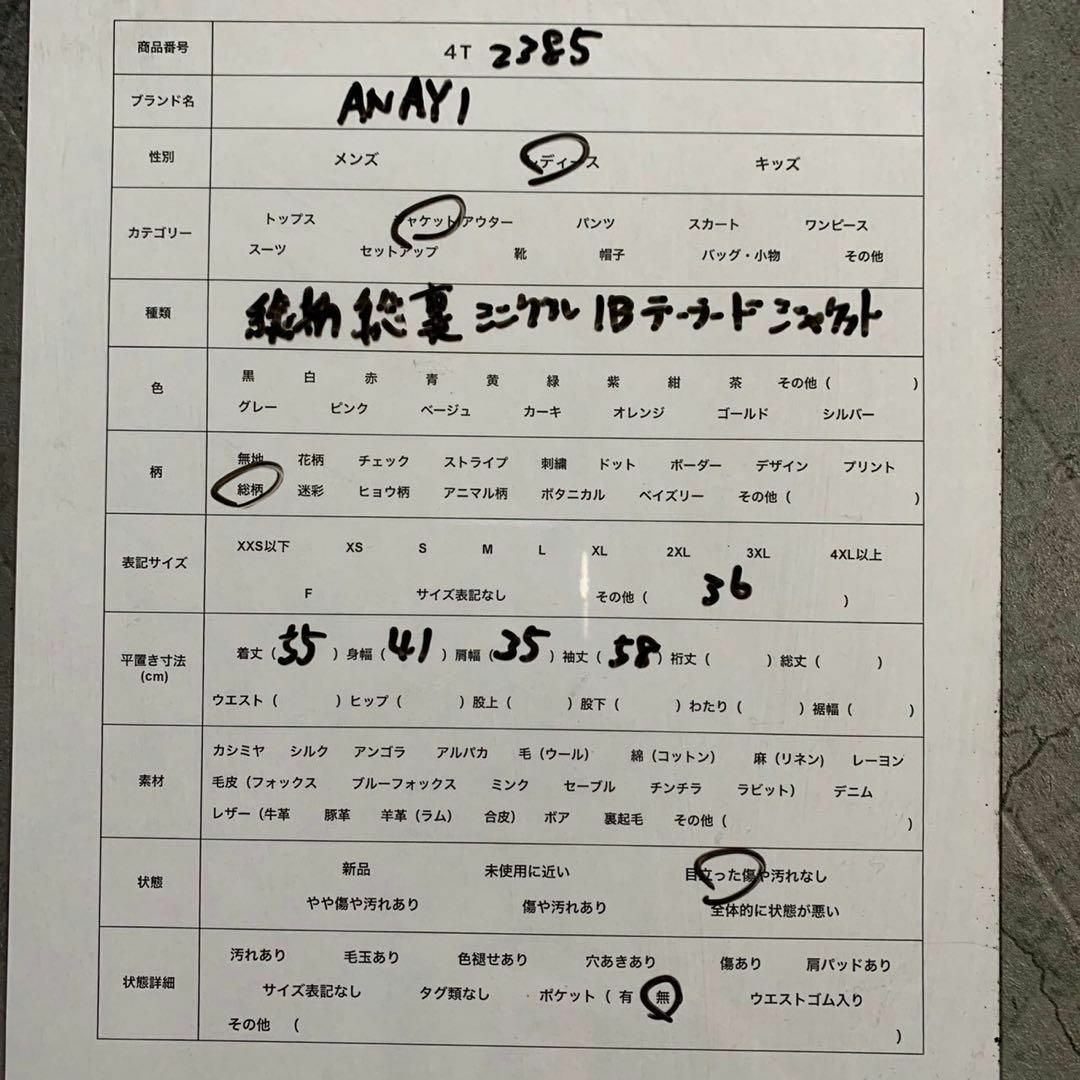 商品番号 4T 2385
ブランド名 ANAYI
性別 メンズ レディース キッズ
カテゴリー
トップス ジャケット/アウター パンツ スカート ワンピース
スーツ セットアップ 靴 帽子 バッグ・小物 その他
種類 総柄 総裏 シングル 1B テーラード ジャケット
色
黒 白 赤 青 黄 緑 紫 紺 茶 その他 ( )
グレー ピンク ベージュ カーキ オレンジ ゴールド シルバー
柄
無地 花柄 チェック ストライプ 刺繍 ドット ボーダー デザイン プリント
総柄 迷彩 ヒョウ柄 アニマル柄 ボタニカル ペイズリー その他 ( )
表記サイズ
XXS以下 XS S M L XL 2XL 3XL 4XL以上
F サイズ表記なし その他 ( 36 )
平置き寸法
(cm)
着丈 ( 55 ) 身幅 ( 41 ) 肩幅 ( 35 ) 袖丈 ( 58 ) 裄丈 ( ) 総丈 ( )
ウエスト ( ) ヒップ ( ) 股上 ( ) 股下 ( ) わたり ( ) 裾幅 ( )
素材
カシミヤ シルク アンゴラ アルパカ 毛 (ウール) 綿 (コットン) 麻 (リネン) レーヨン
毛皮 (フォックス ブルーフォックス ミンク セーブル チンチラ ラビット) デニム
レザー (牛革 豚革 羊革 (ラム) 合皮) ボア 裏起毛 その他 ( )
状態
新品 未使用に近い 目立った傷や汚れなし
やや傷や汚れあり 傷や汚れあり 全体的に状態が悪い
状態詳細
汚れあり 毛玉あり 色褪せあり 穴あきあり 傷あり 肩パッドあり
サイズ表記なし タグ類なし ポケット ( 有 無 ウエストゴム入り
その他 ( )